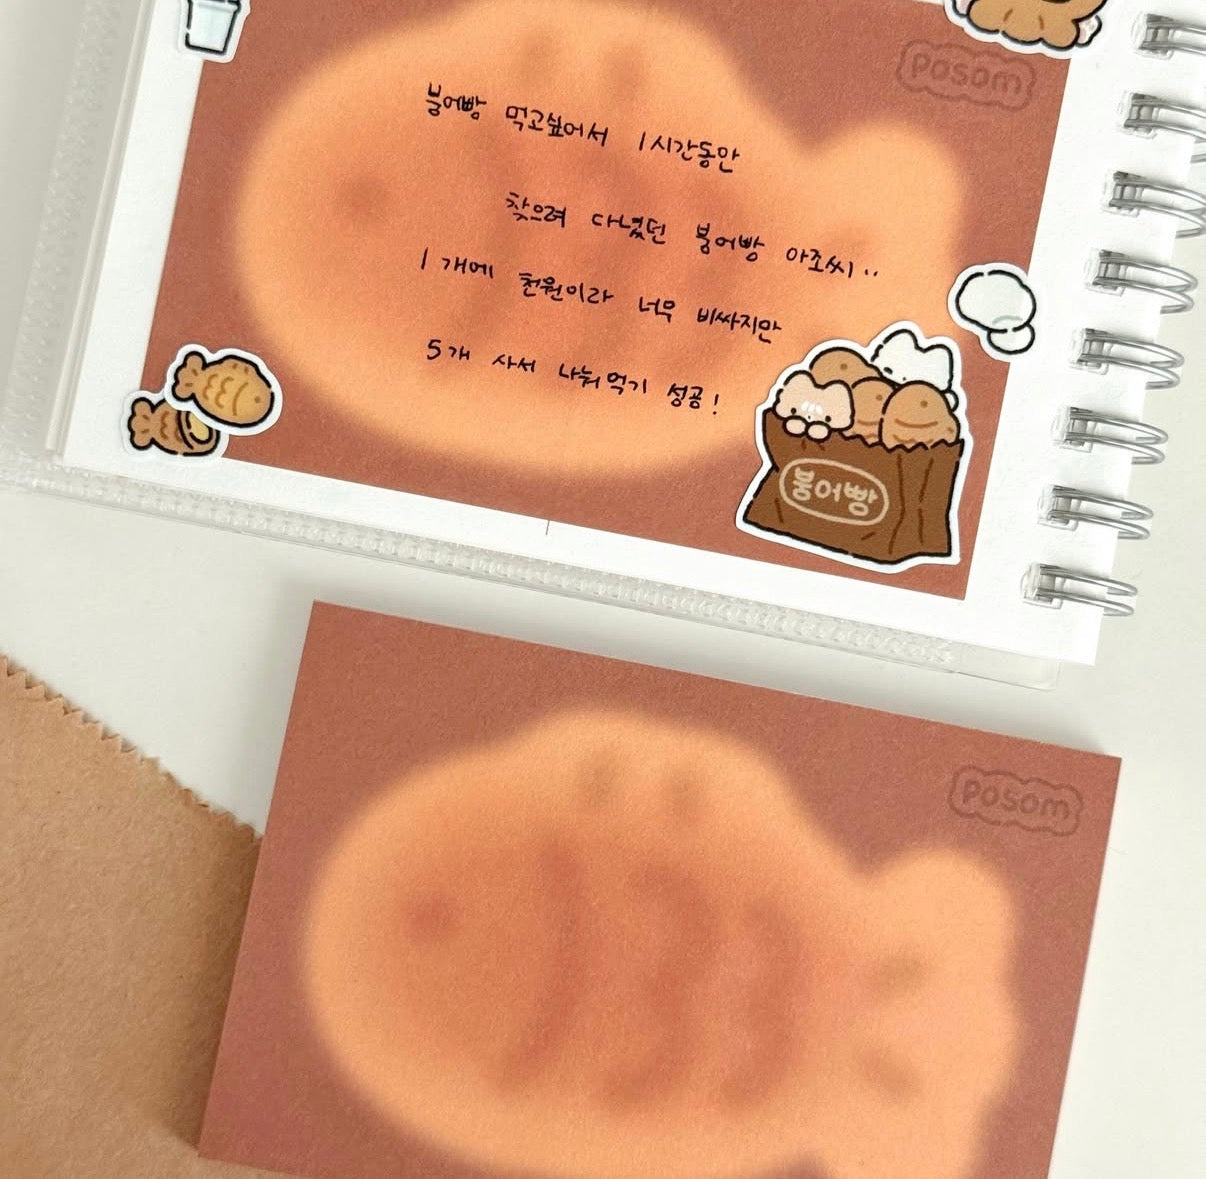 posom
붕어빵 먹고싶어서 1시간동안
찾으려 다녔던 붕어빵 아조씨..
1개에 천원이라 너무 비싸지만
5개 사서 나눠먹기 성공!
붕어빵
posom